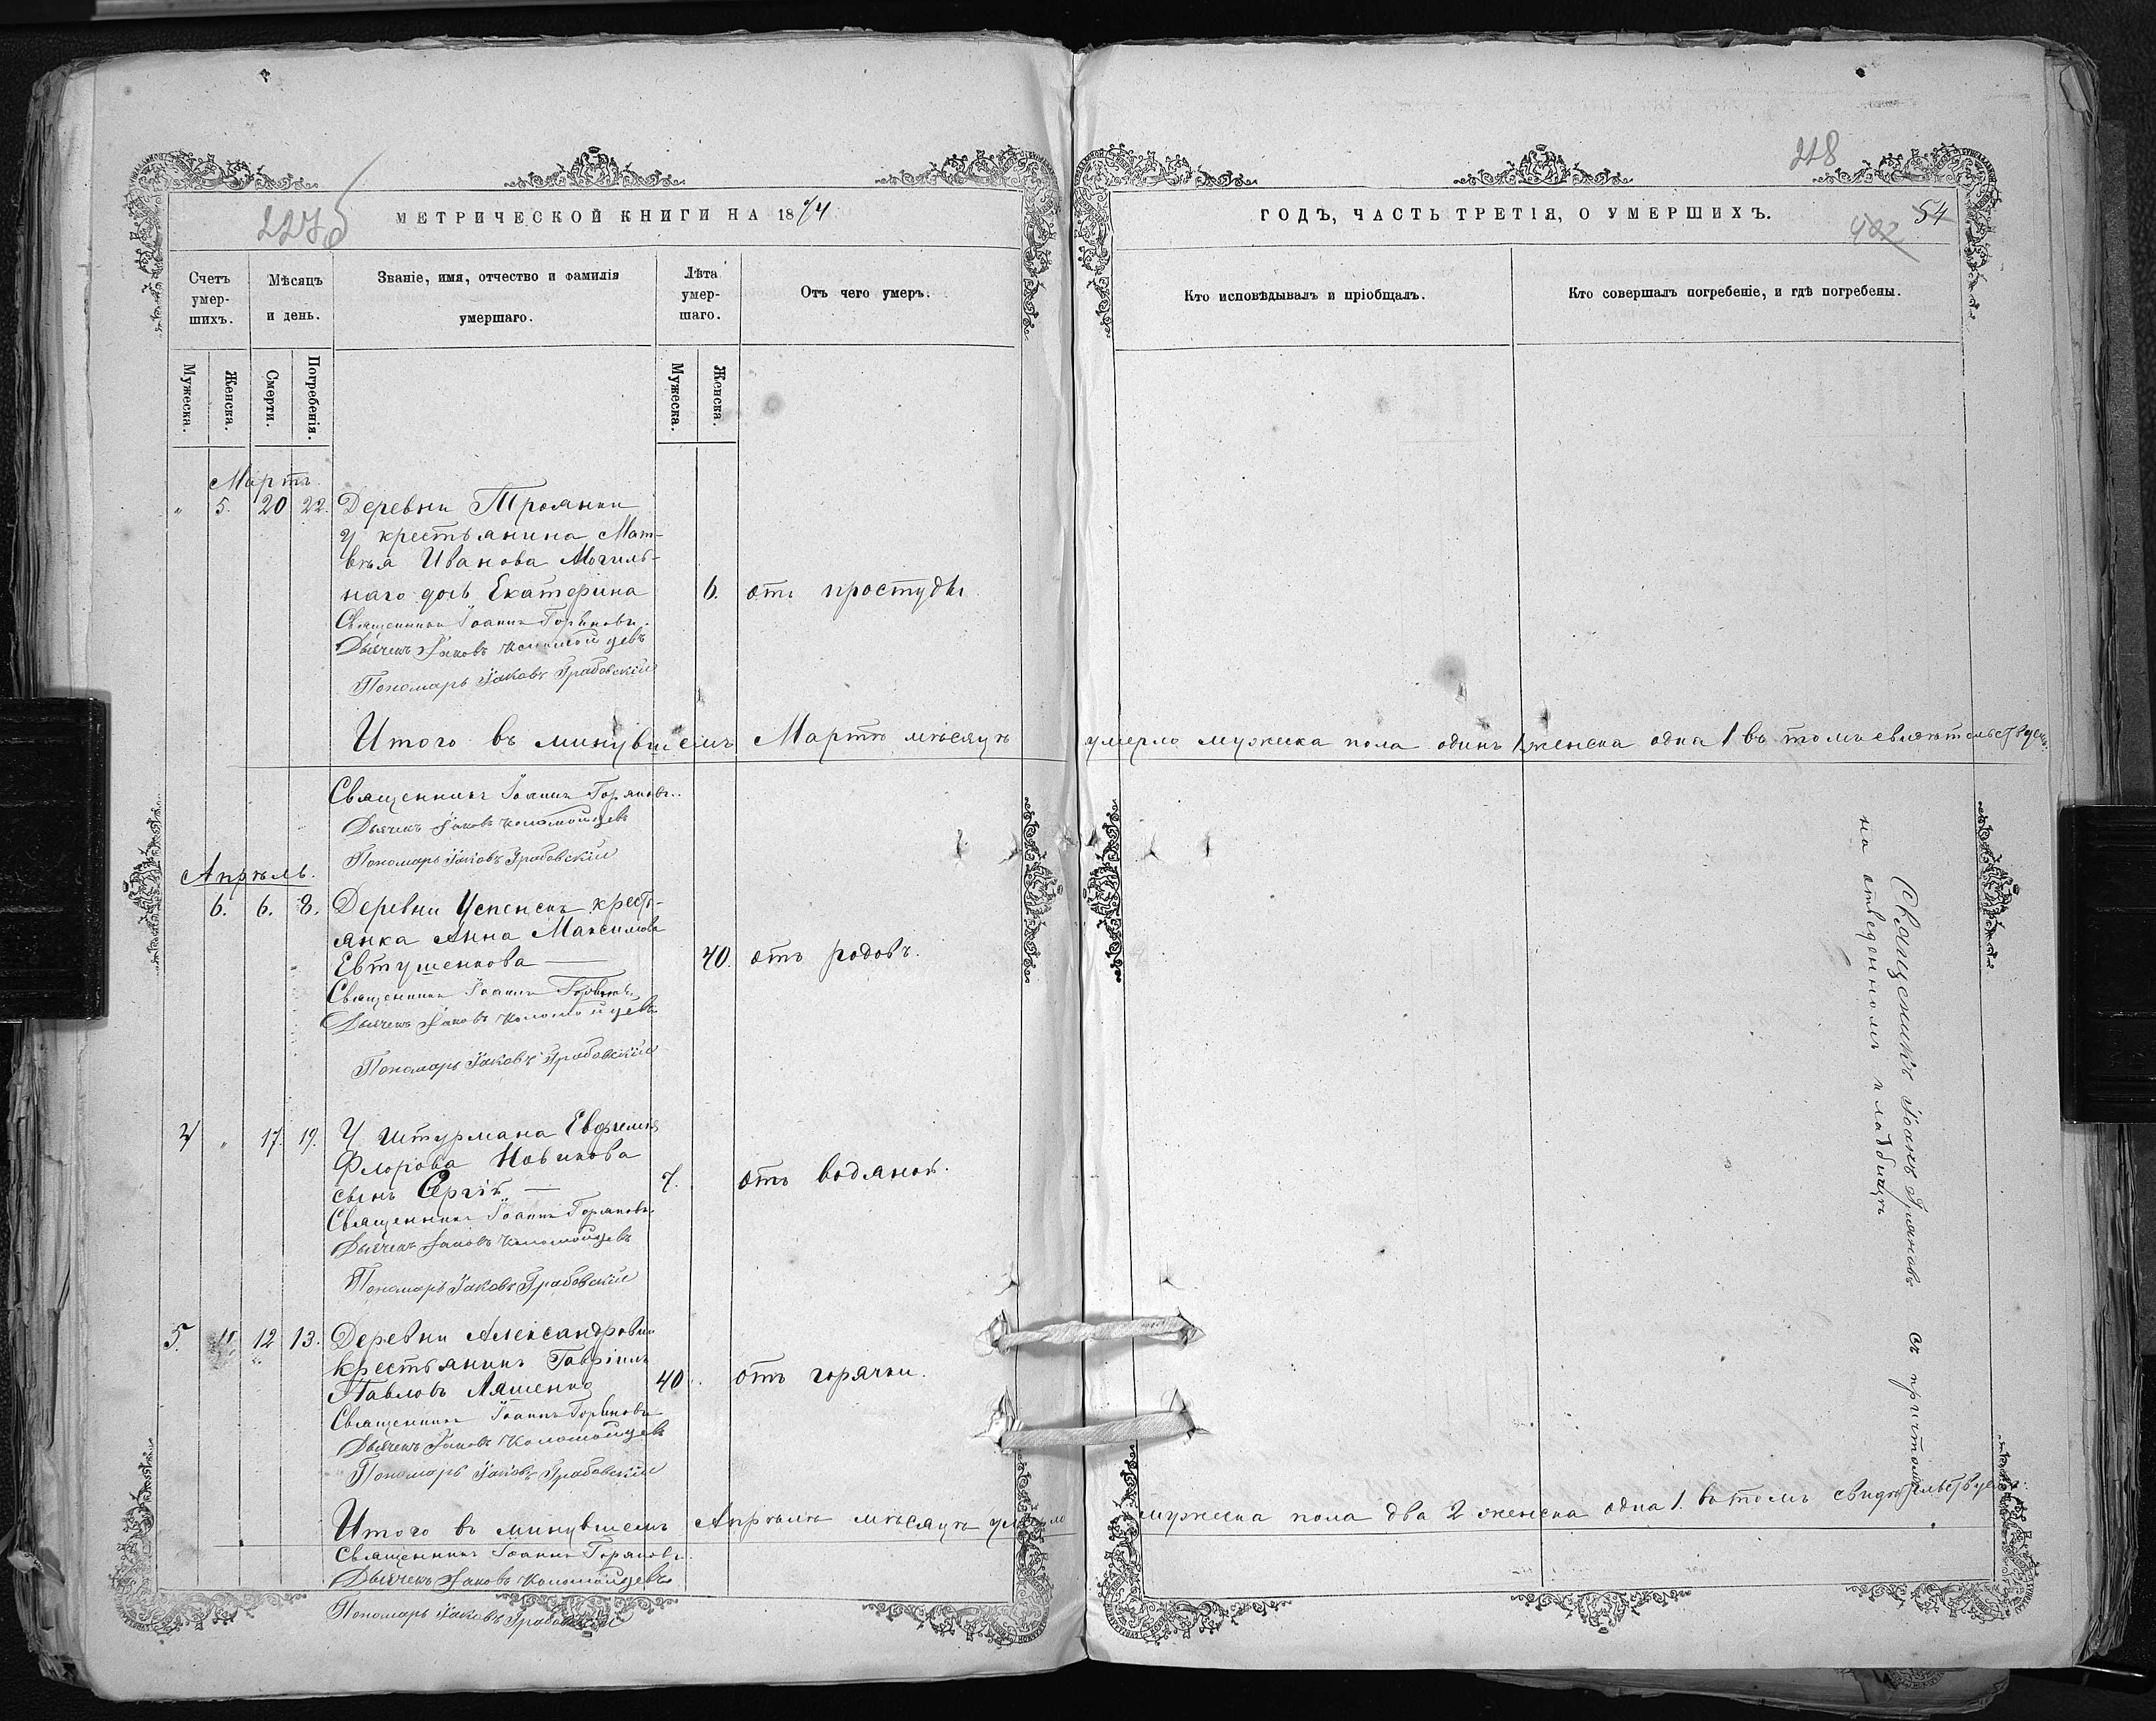 227об
МЕТРИЧЕСКОЙ КНИГИ НА 1874
Счетъ умер-шихъ.
Мѣсяцъ и день.
Званіе, имя, отчество и фамилія умершаго.
Лѣта умер-шаго.
Отъ чего умеръ.
Мужеска.
Женска.
Смерти.
Погребенія.
Мужеска.
Женска.
Мартъ
" 5. 20 22. Деревни Троянки
у крестьянина Мат-
вѣя Иванова Могиль-
наго дочь Екатерина 6. отъ простуды
Священникъ Іоаннъ Горяновъ.
Дьячекъ Іаковъ Коломойцевъ
Пономарь Іаковъ Грабовскій
Итого въ минувшемъ Мартѣ мѣсяцѣ
Священникъ Іоаннъ Горяновъ.
Дьячекъ Іаковъ Коломойцевъ
Пономарь Іаковъ Грабовскій
Апрѣль.
6. 6. 8. Деревни Успенска кресть-
янка Анна Максимова
Евтушенкова — 40. отъ родовъ.
Священникъ Іоаннъ Горяновъ
Дьячекъ Іаковъ Коломойцевъ
Пономарь Іаковъ Грабовскій
4 " 17. 19. У штурмана Евфимія
Флорова Новикова
сынъ Сергій — 7. отъ водяной.
Священникъ Іоаннъ Горяновъ
Дьячекъ Іаковъ Коломойцевъ
Пономарь Іаковъ Грабовскій
5. " 12 13. Деревни Александровки
крестьянинъ Гавріилъ
Павловъ Ляшенко 40. отъ горячки.
Священникъ Іоаннъ Горяновъ
Дьячекъ Іаковъ Коломойцевъ
Пономарь Іаковъ Грабовскій
Итого въ минувшемъ Апрѣлѣ мѣсяцѣ умерло
Священникъ Іоаннъ Горяновъ.
Дьячекъ Іаковъ Коломойцевъ
Пономарь Іаковъ Грабовскій
228
ГОДЪ, ЧАСТЬ ТРЕТІЯ, О УМЕРШИХЪ.
402 54
Кто исповѣдывалъ и пріобщалъ.
Кто совершалъ погребеніе, и гдѣ погребены.
умерло мужеска пола одинъ 1 женска одна 1 въ томъ свидѣтельствуемъ
Священникъ Іоаннъ Горяновъ съ причтомъ
на отведенномъ кладбищѣ
мужеска пола два 2 женска одна 1. въ томъ свидѣтельствуемъ: